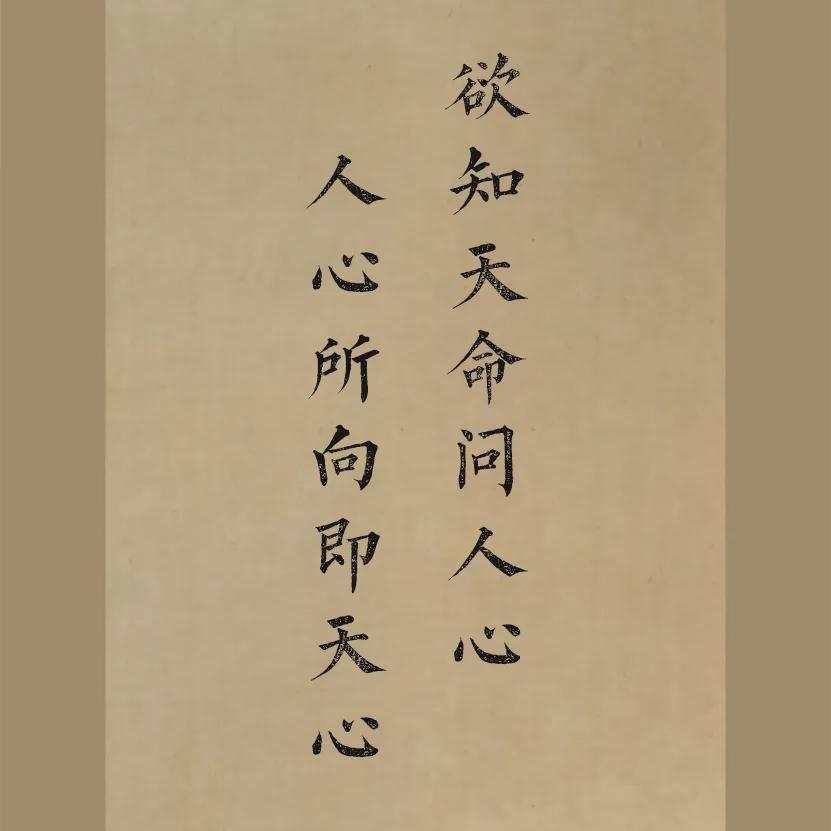 欲知天命问人心
人心所向即天心